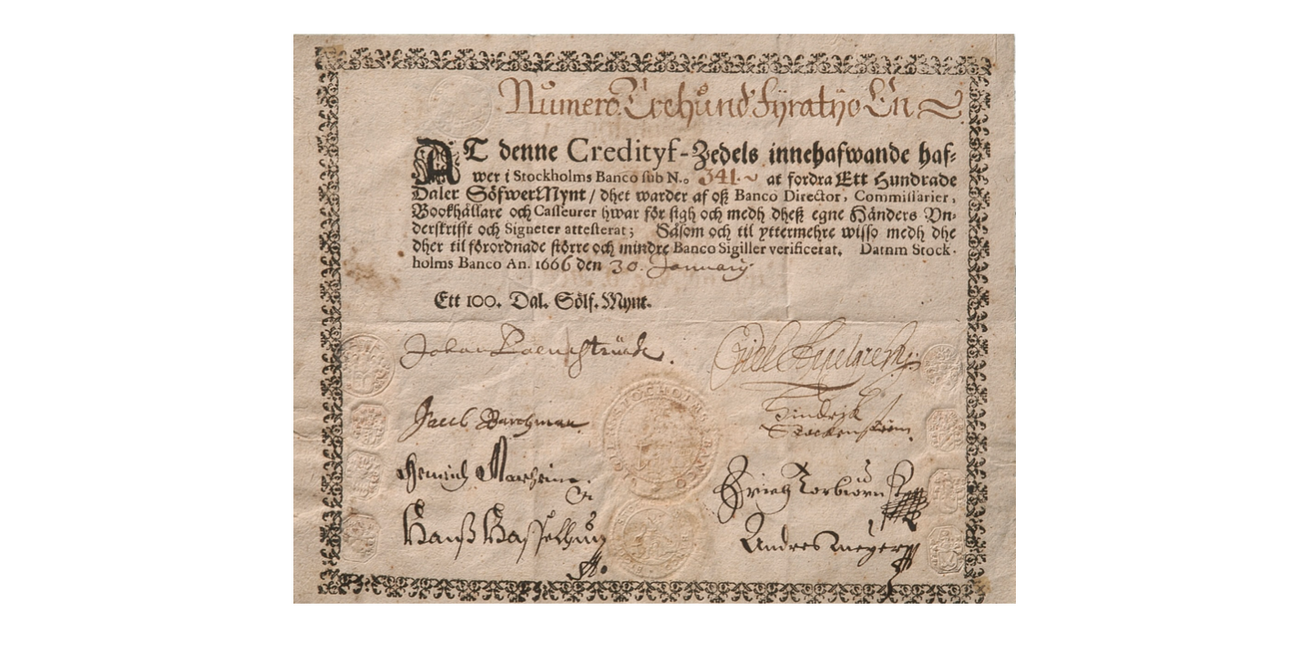 Numero Trehund Fyratijo En
AT denne Credityf-Zedels innehafwande haf-
wer i Stockholms Banco sub N.o 341. at fordra Ett Hundrade
Daler SöfwerMynt / dhet warder af oß Banco Director, Commissarier,
Bookhållare och Casseurer hwar för sigh och medh dheß egne Händers Vn-
derskrifft och Signeter attesterat; Såsom och til yttermehre wisso medh dhe
dher til förordnade större och mindre Banco Sigiller verificerat. Datum Stock-
holms Banco An. 1666 den 30. January.
Ett 100. Dal. Sölf. Mynt.
Johan
Jacob Barchman
Hindrich
Stockenström
Henrich
Erich Torbiörn
Hanß Hasselhun
Andres meyer